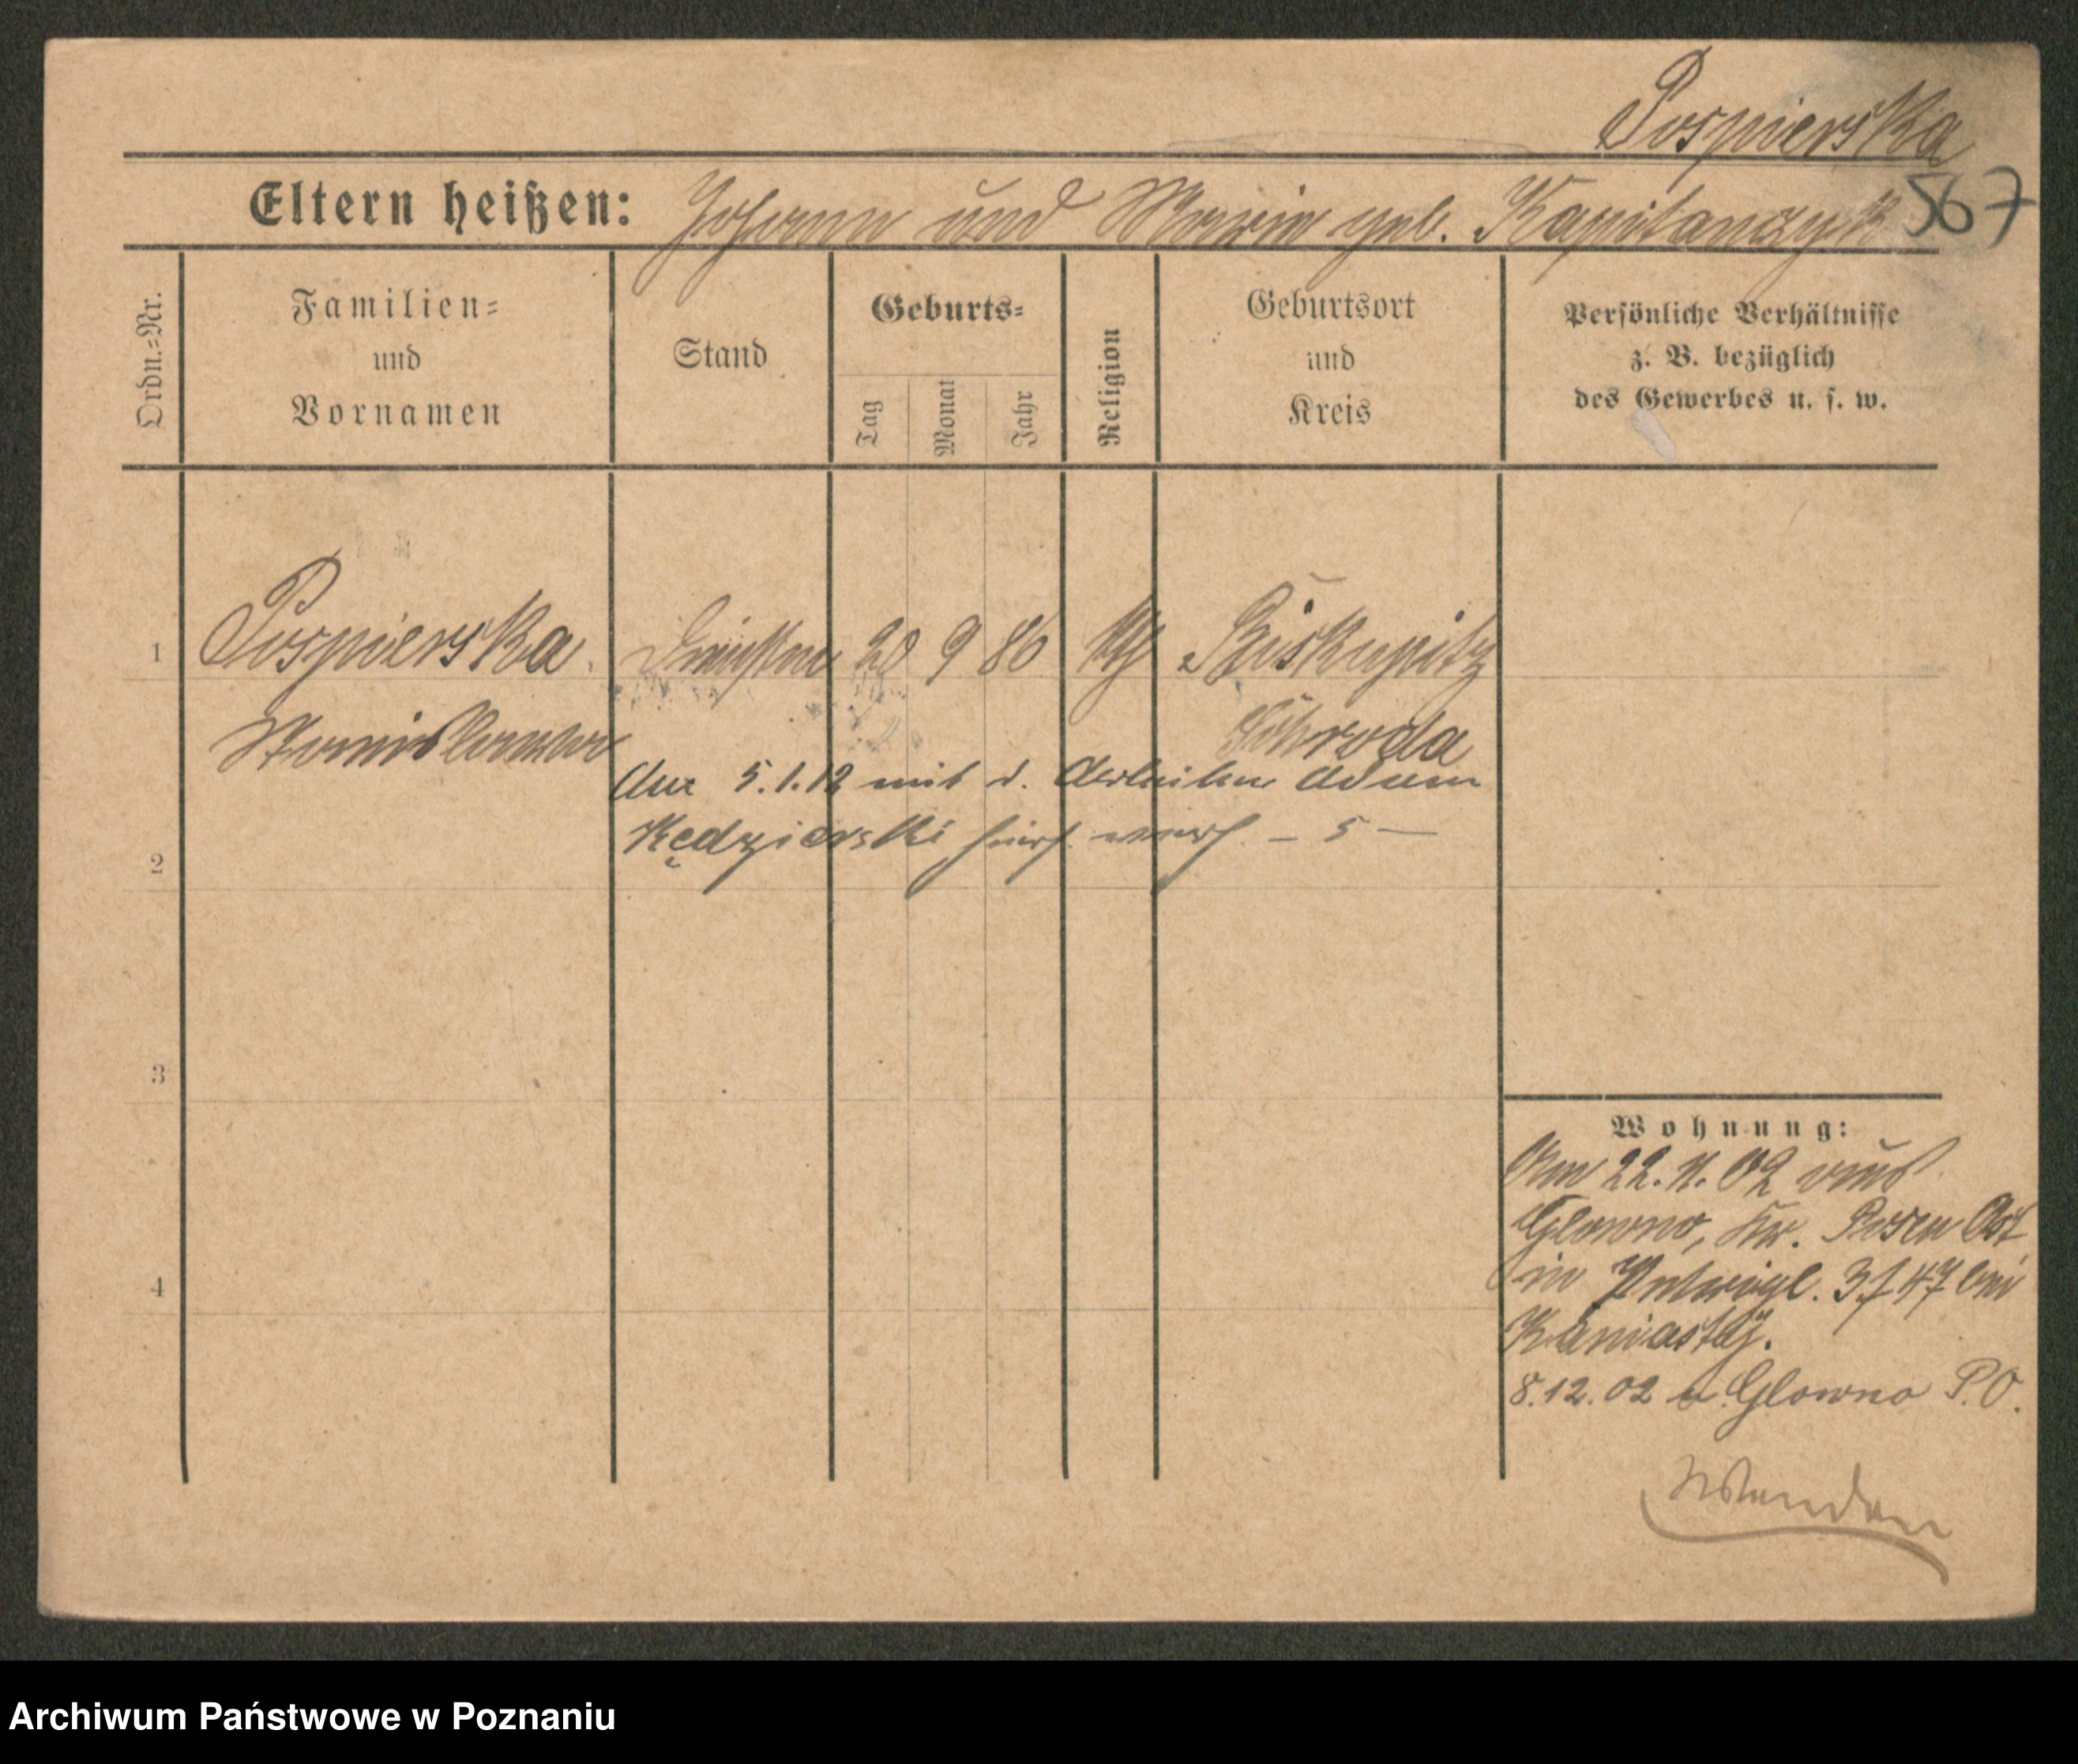 Pospierska
567
Eltern heißen: Johann und Maria geb. Kapitanczyk
Ordn.=Nr.
Familien=
und
Vornamen
Stand
Geburts=
Tag
Monat
Jahr
Religion
Geburtsort
und
Kreis
Persönliche Verhältnisse
z. B. bezüglich
des Gewerbes u. s. w.
1 Pospierska 20 9 86 kth Biskupitz
Stanislawa Schroda
Am 5.1.12 mit d. Arbeiter Adam
Kędzierski hier verh. – 5 –
2
3
4
Wohnung:
Am 22.11.02 aus
Glowno, Kr. Posen Ost
in 347 bei
Kaniasty.
8.12.02 n. Glowno P.O.
Archiwum Państwowe w Poznaniu